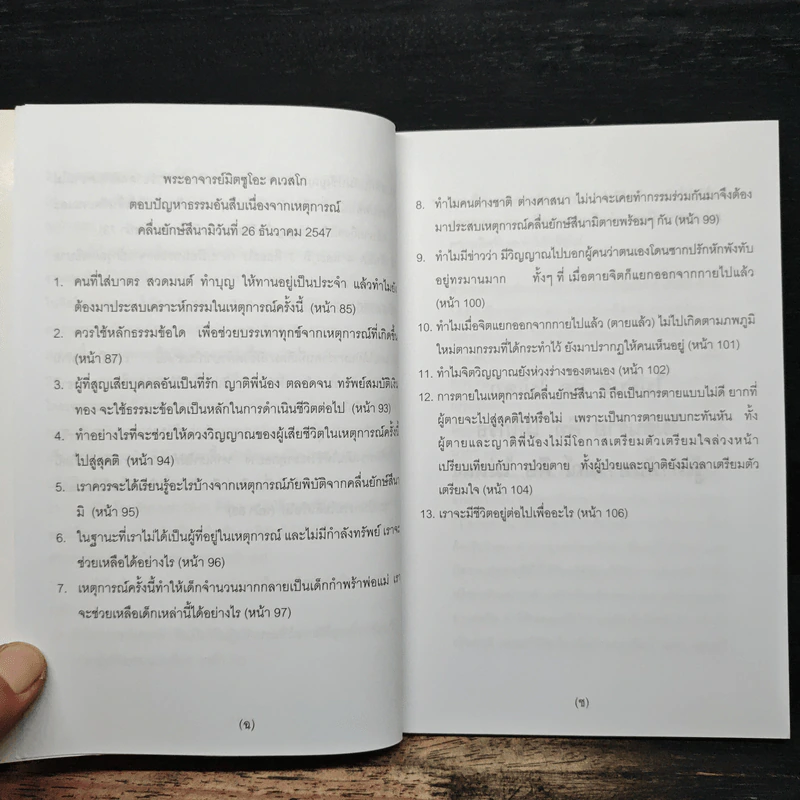 พระอาจารย์มิตซูโอะ คเวสโก
ตอบปัญหาธรรมอันสืบเนื่องจากเหตุการณ์
คลื่นยักษ์สึนามิวันที่ 26 ธันวาคม 2547
1. คนที่ใส่บาตร สวดมนต์ ทำบุญ ให้ทานอยู่เป็นประจำ แล้วทำไม
ต้องมาประสบเคราะห์กรรมในเหตุการณ์ครั้งนี้ (หน้า 85)
2. ควรใช้หลักธรรมข้อใด เพื่อช่วยบรรเทาทุกข์จากเหตุการณ์ที่เกิดขึ้น
(หน้า 87)
3. ผู้ที่สูญเสียบุคคลอันเป็นที่รัก ญาติพี่น้อง ตลอดจน ทรัพย์สมบัติเงิน
ทอง จะใช้ธรรมะข้อใดเป็นหลักในการดำเนินชีวิตต่อไป (หน้า 93)
4. ทำอย่างไรที่จะช่วยให้ดวงวิญญาณของผู้เสียชีวิตในเหตุการณ์ครั้งนี้
ไปสู่สุคติ (หน้า 94)
5. เราควรจะได้เรียนรู้อะไรบ้างจากเหตุการณ์ภัยพิบัติจากคลื่นยักษ์สึนา
มิ (หน้า 95)
6. ในฐานะที่เราไม่ได้เป็นผู้ที่อยู่ในเหตุการณ์ และไม่มีกำลังทรัพย์ เราจะ
ช่วยเหลือได้อย่างไร (หน้า 96)
7. เหตุการณ์ครั้งนี้ทำให้เด็กจำนวนมากกลายเป็นเด็กกำพร้าพ่อแม่
จะช่วยเหลือเด็กเหล่านี้ได้อย่างไร (หน้า 97)
(ฉ)
8. ทำไมคนต่างชาติ ต่างศาสนา ไม่น่าจะเคยทำกรรมร่วมกันมาจึงต้อง
มาประสบเหตุการณ์คลื่นยักษ์สึนามิตายพร้อมๆ กัน (หน้า 99)
9. ทำไมมีข่าวว่า มีวิญญาณไปบอกผู้คนว่าตนเองโดนซากปรักหักพังทับ
อยู่ทรมานมาก ทั้งๆ ที่ เมื่อตายจิตก็แยกออกจากกายไปแล้ว
(หน้า 100)
10. ทำไมเมื่อจิตแยกออกจากกายไปแล้ว (ตายแล้ว) ไม่ไปเกิดตามภพภูมิ
ใหม่ตามกรรมที่ได้กระทำไว้ ยังมาปรากฏให้คนเห็นอยู่ (หน้า 101)
11. ทำไมจิตวิญญาณยังห่วงร่างของตนเอง (หน้า 102)
12. การตายในเหตุการณ์คลื่นยักษ์สึนามิ ถือเป็นการตายแบบไม่ดี ยากที่
ผู้ตายจะไปสู่สุคติใช่หรือไม่ เพราะเป็นการตายแบบกะทันหัน ทั้ง
ผู้ตายและญาติพี่น้องไม่มีโอกาสเตรียมตัวเตรียมใจล่วงหน้า
เปรียบเทียบกับการป่วยตาย ทั้งผู้ป่วยและญาติยังมีเวลาเตรียมตัว
เตรียมใจ (หน้า 104)
13. เราจะมีชีวิตอยู่ต่อไปเพื่ออะไร (หน้า 106)
(ช)